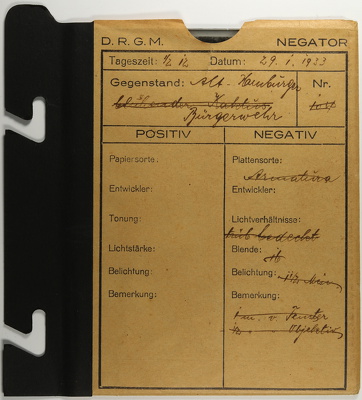 D. R. G. M. NEGATOR
Tageszeit: ½ 12 Datum: 29. I. 1933
Gegenstand: Alt-Hamburger Nr.
Bürgerwehr
POSITIV NEGATIV
Papiersorte: Plattensorte:
Entwickler: Entwickler:
Tonung: Lichtverhältnisse:
bedeckt
Lichtstärke: Blende:
Belichtung: Belichtung:
Bemerkung: Bemerkung:
v. Fenster
Objektiv